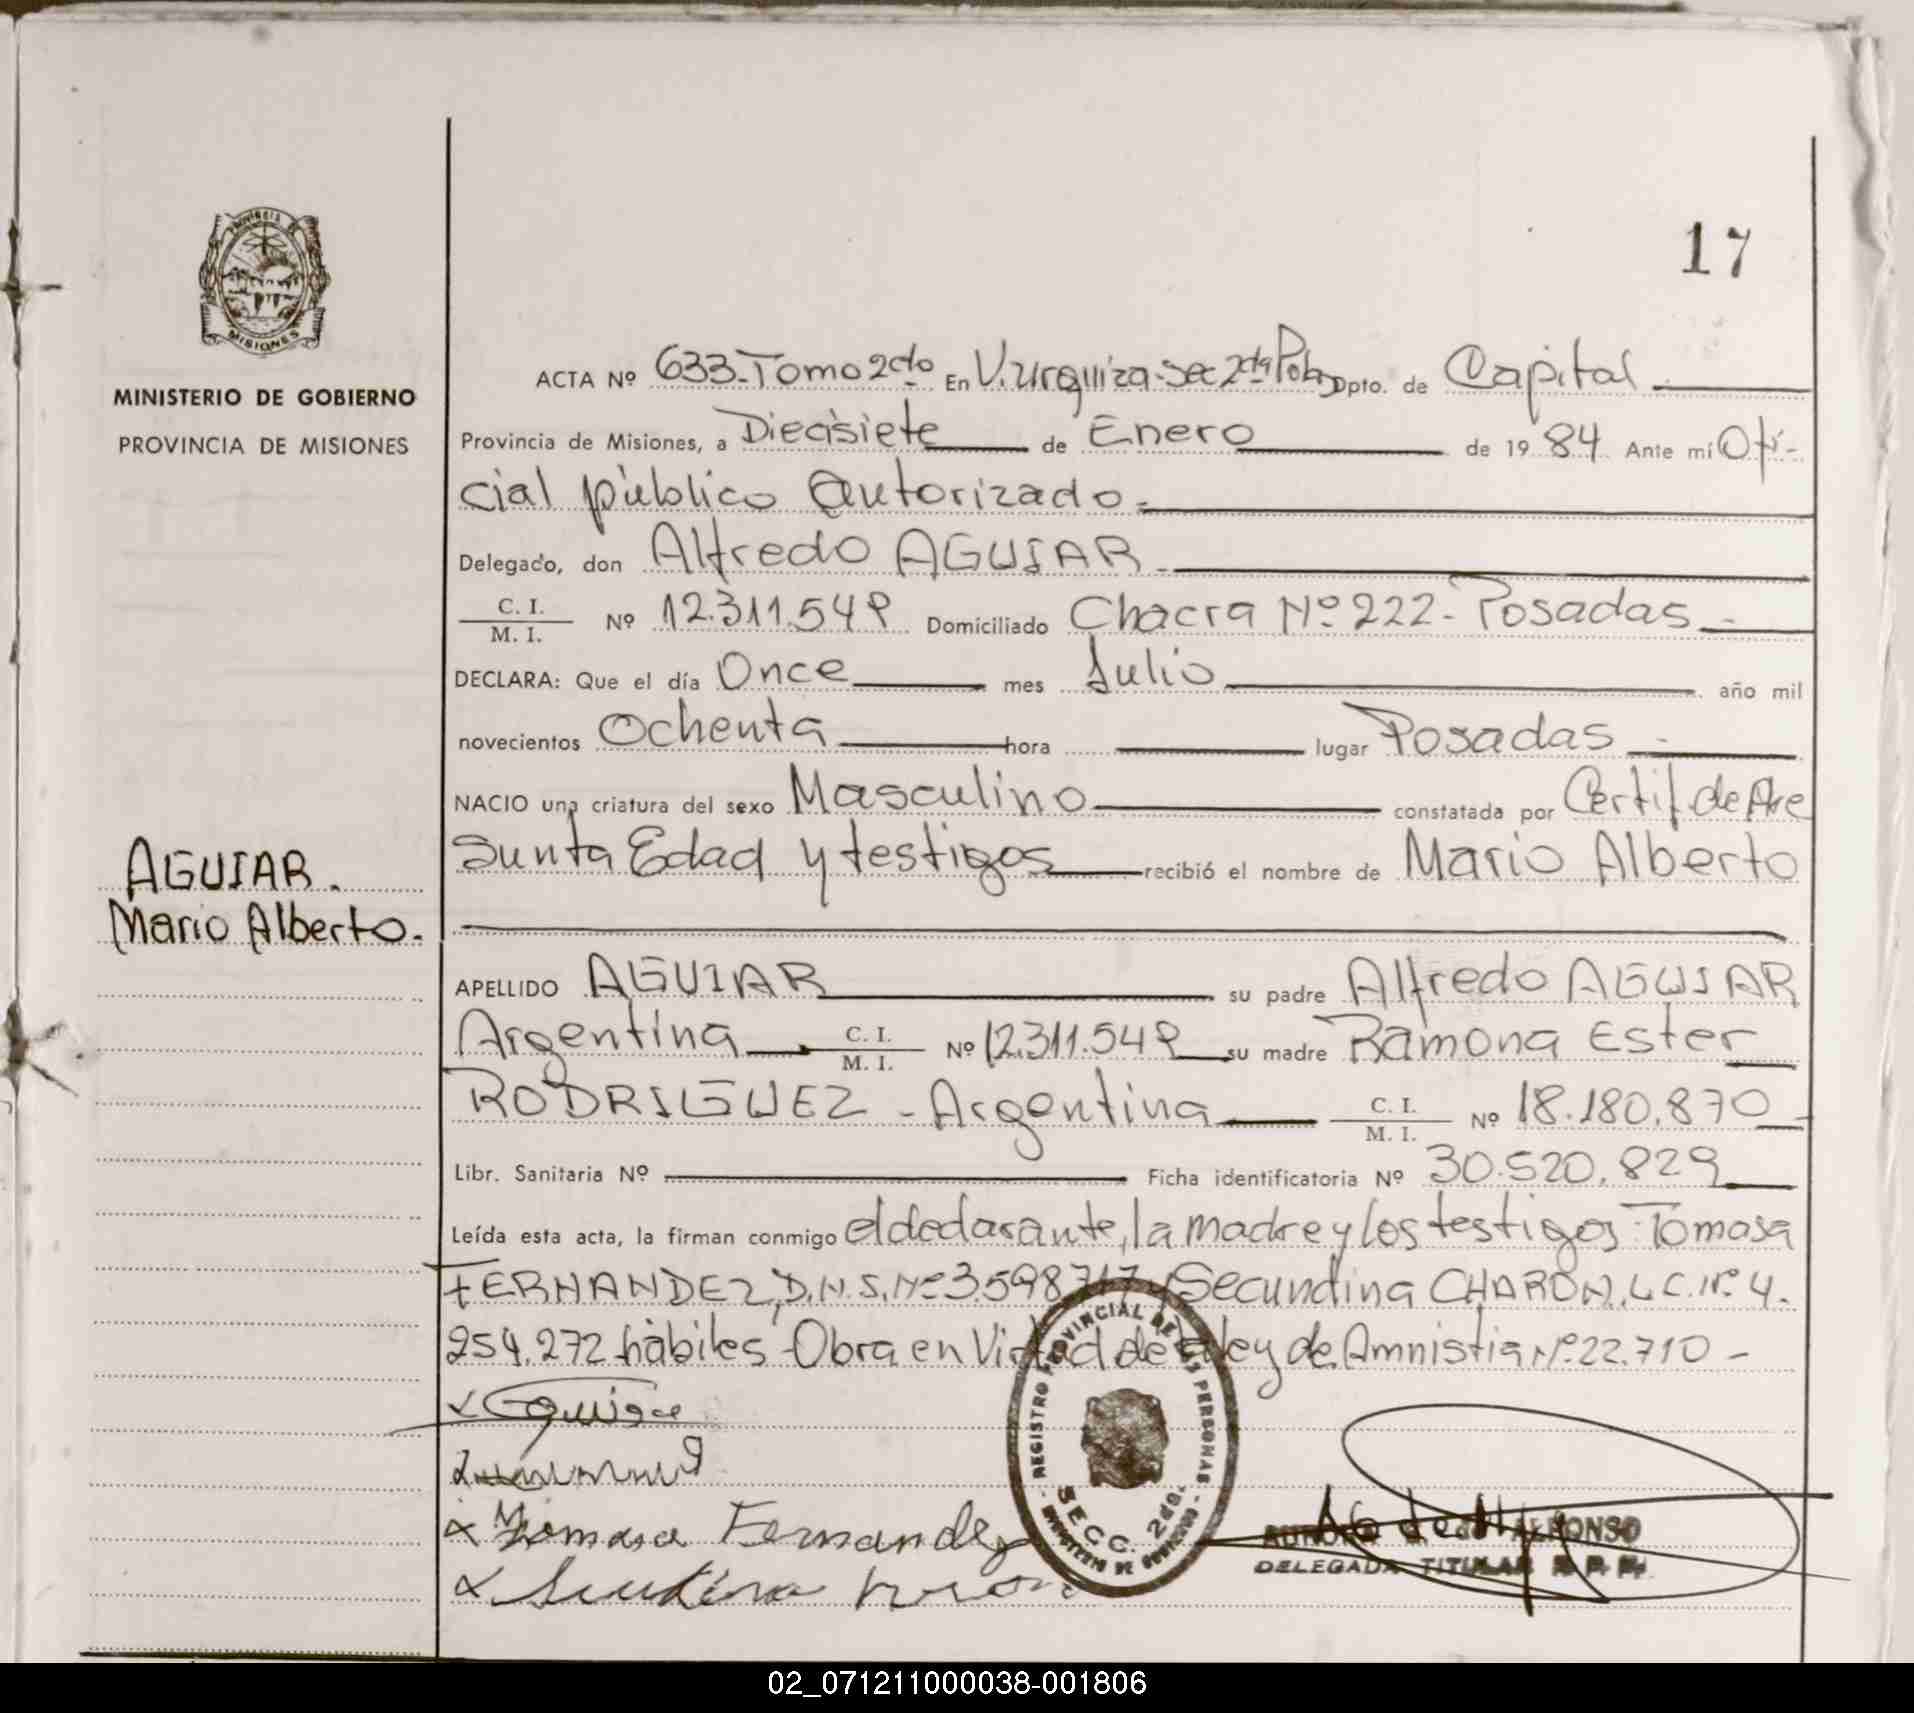 17
PROVINCIA DE
MISIONES
MINISTERIO DE GOBIERNO
PROVINCIA DE MISIONES
ACTA Nº 633-Tomo 2do En V. Urquiza-Sec 2da Pdas Dpto. de Capital
Provincia de Misiones, a Diecisiete de Enero de 19 84 Ante mí Ofi-
cial público Autorizado.
Delegado, don Alfredo AGUIAR
C. I.
M. I. Nº 12.311.549 Domiciliado Chacra Nº 222- Posadas
DECLARA: Que el día Once mes Julio año mil
novecientos Ochenta hora lugar Posadas
NACIO una criatura del sexo Masculino constatada por Certif. de Pre
Sunta Edad y testigos recibió el nombre de Mario Alberto
AGUIAR.
Mario Alberto.
APELLIDO AGUIAR su padre Alfredo AGUIAR
Argentina C. I.
M. I. Nº 12.311.549 su madre Ramona Ester
RODRIGUEZ - Argentina C. I.
M. I. Nº 18.180.870
Libr. Sanitaria Nº Ficha identificatoria Nº 30.520.829
Leída esta acta, la firman conmigo el declarante, la madre y los testigos Tomasa
FERNANDEZ, D.N.I. Nº 3.598.717 y Secundina CHARON, L.C. Nº 4.
254.272 hàbiles Obra en Virtud de la ley de Amnistia Nº 22.710 -
Tomasa Fernandez
REGISTRO PROVINCIAL DE LAS PERSONAS
SECC. 2da.
MINISTERIO DE GOBIERNO
ALFONSO
DELEGADA TITULAR R. P. P.
02_071211000038-001806